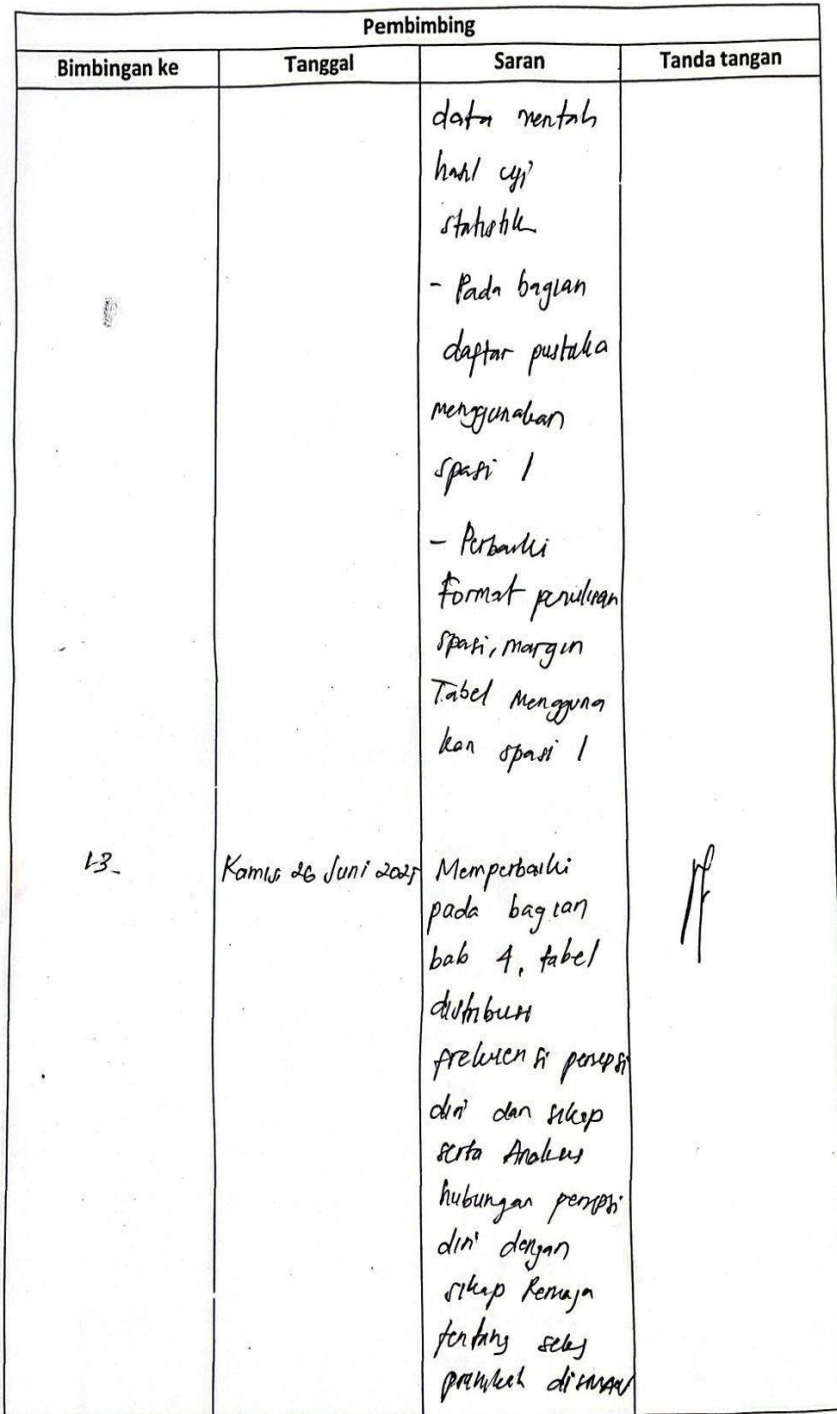 Pembimbing
Bimbingan ke Tanggal Saran Tanda tangan
data mentah
hasil uji
statistik
- Pada bagian
daftar pustaka
menggunakan
spasi 1
- Perbaiki
Format penulisan
spasi, margin
Tabel Mengguna
kan spasi 1
13- Kamis 26 Juni 2025 Memperbaiki
pada bagian
bab 4, tabel
distribusi
frekuensi persepsi
diri dan sikap
serta Analisis
hubungan persepsi
diri dengan
sikap Remaja
tentang seks
pranikah di SMAN